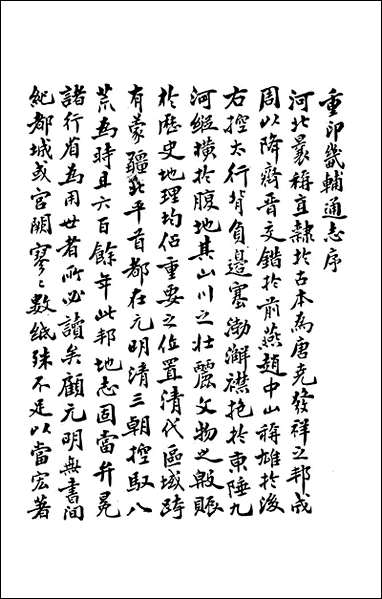 重印畿輔通志序
河北曩稱直隸於古本為唐堯發祥之邦成
周以降齊晋交錯於前燕趙中山稱雄於後
右控太行背負邊塞渤澥襟抱於東陲九
河縱橫於腹地其山川之壯麗文物之殷賑
於歷史地理均佔重要之位置清代區域跨
有蒙疆北平首都在元明清三朝控馭八
荒為時且六百餘年此邦地志固當弁冕
諸行省為用世者所必讀矣顧元明無書間
紀都城或宮闕寥寥數紙殊不足以當宏著